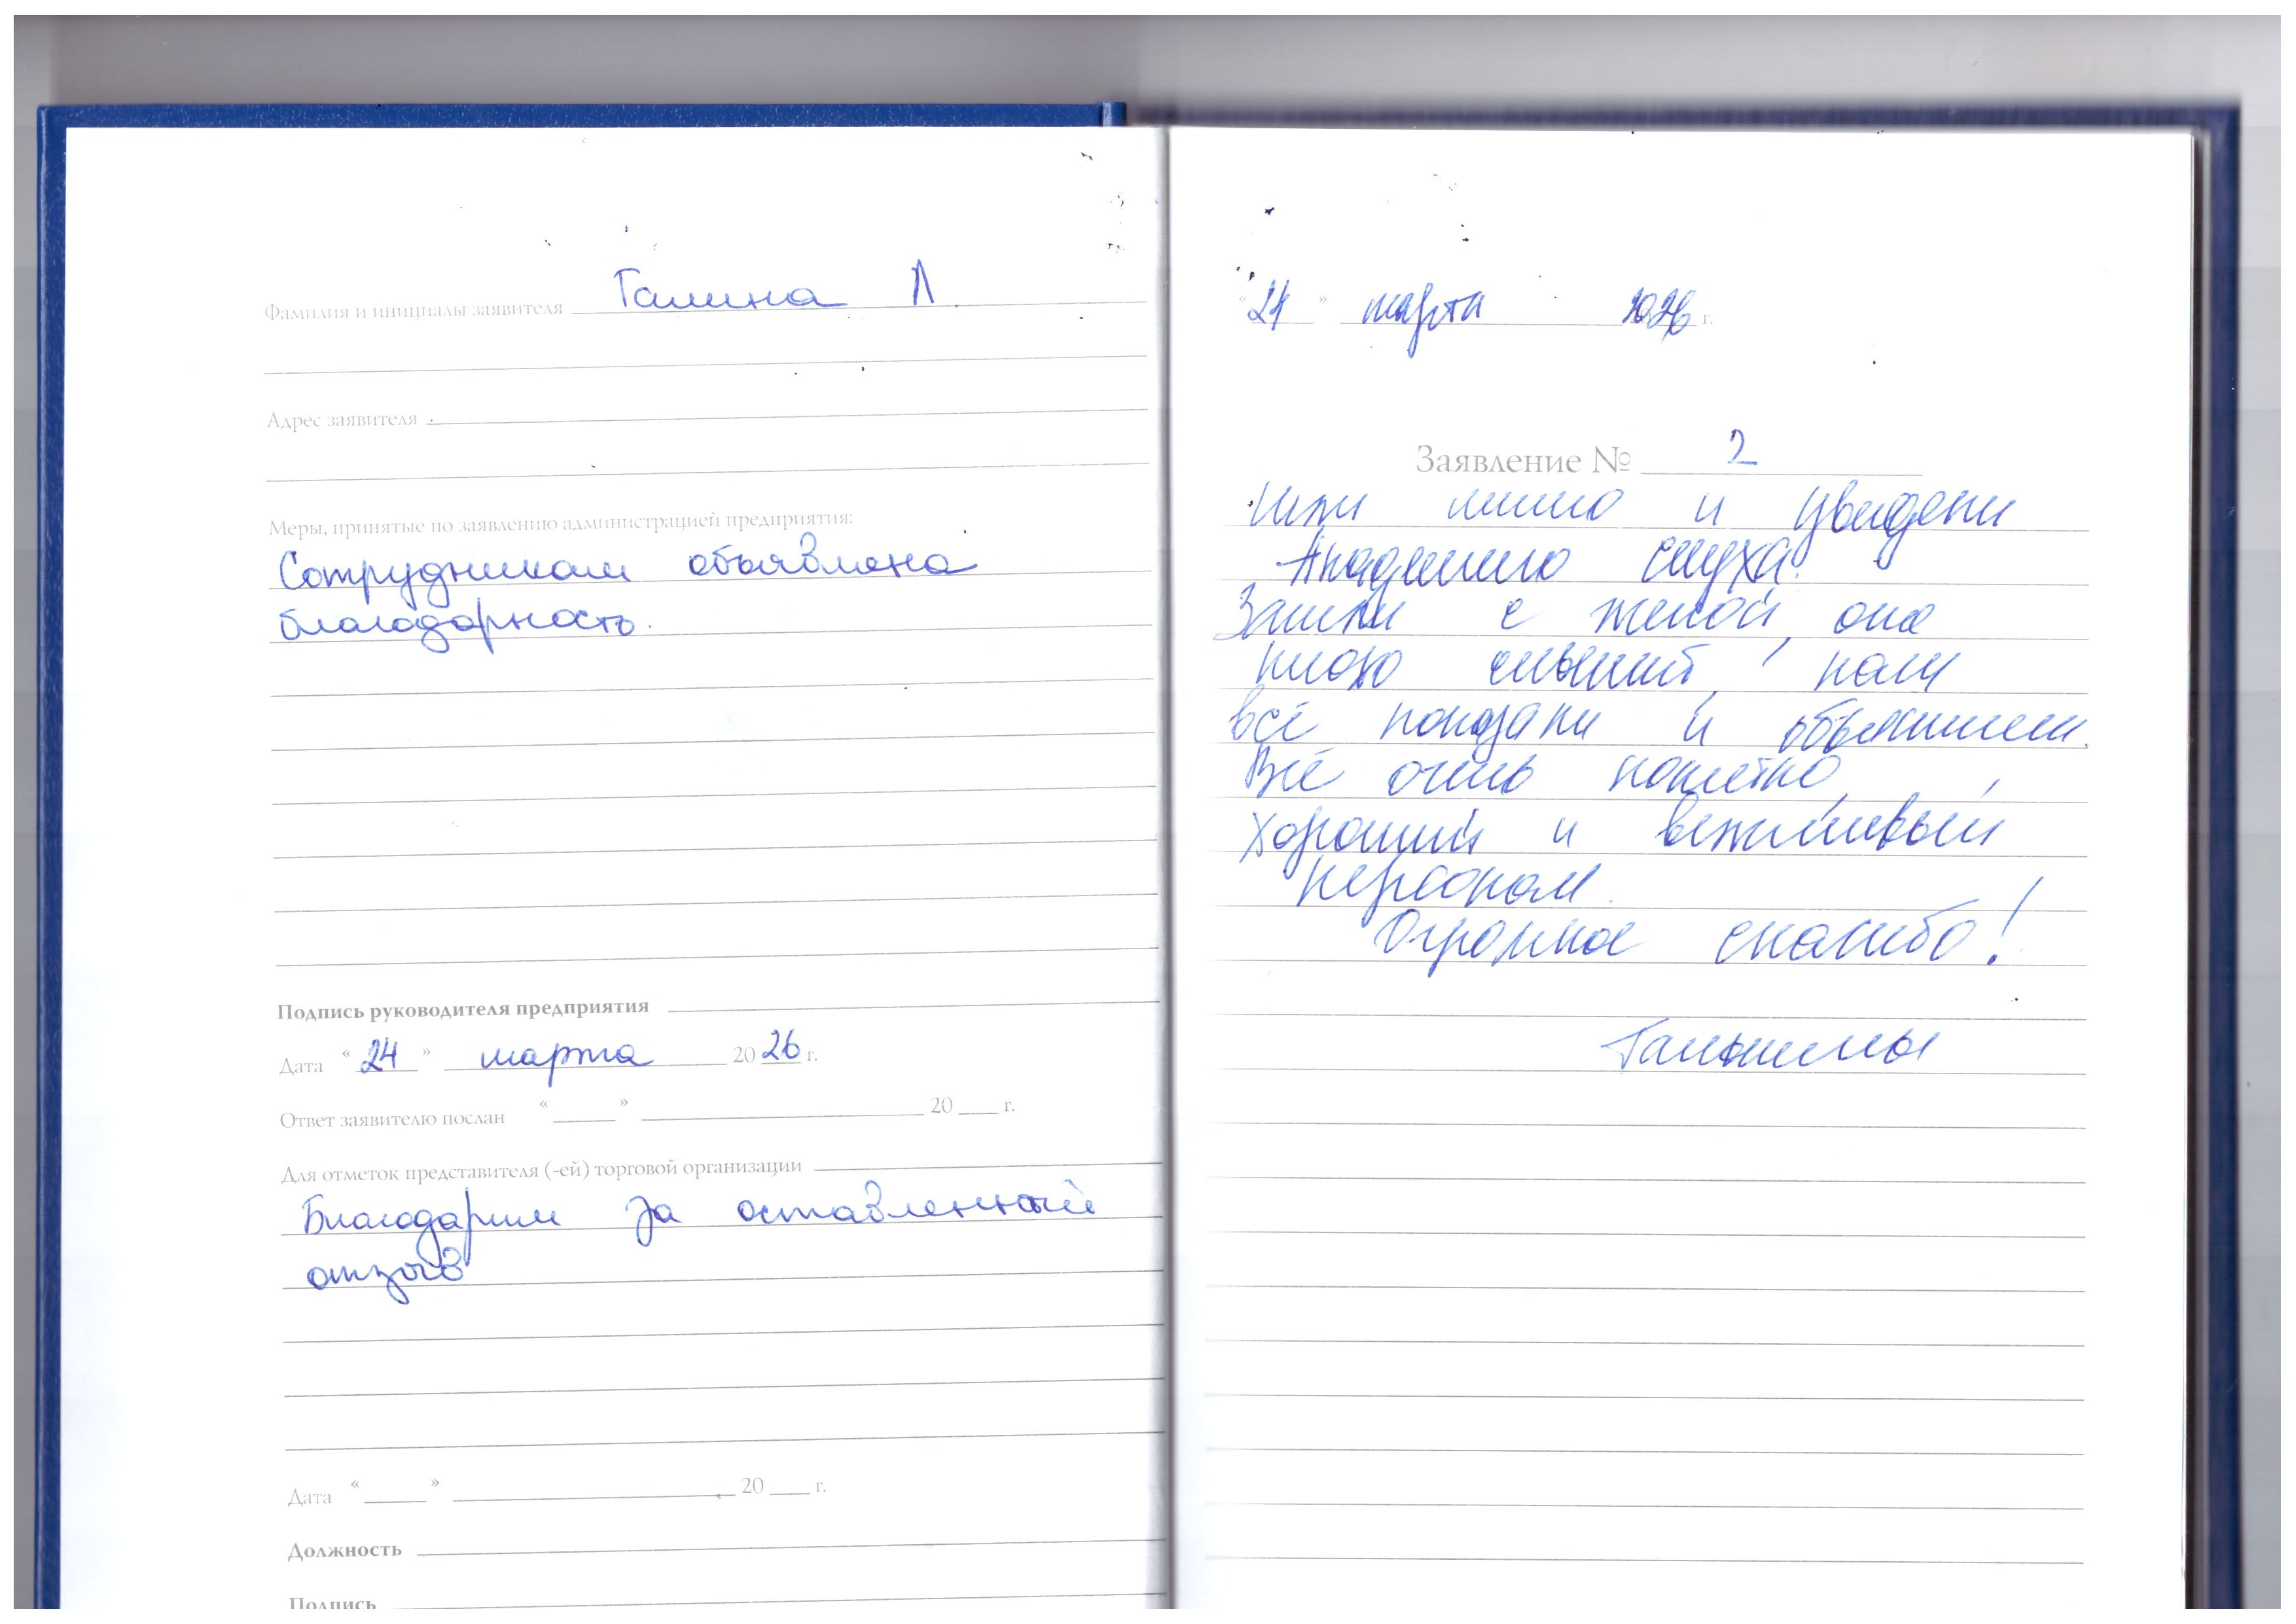 Фамилия и инициалы заявителя Галина Л.
Адрес заявителя
Меры, принятые по заявлению администрацией предприятия:
Сотрудникам объявлена
благодарность.
Подпись руководителя предприятия
Дата “ 24 ” марта 20 26 г.
Ответ заявителю послан “ ” 20 г.
Для отметок представителя (-ей) торговой организации
Благодарим за оставленный
отзыв
Дата “ ” 20 г.
Должность
Подпись
“ 24 ” марта 2026 г.
Заявление № 2
Шли мимо и увидели
Академию слуха.
Зашли с женой, она
плохо слышит, нам
всё показали и объяснили.
Всё очень понятно,
хороший и вежливый
персонал.
Огромное спасибо!